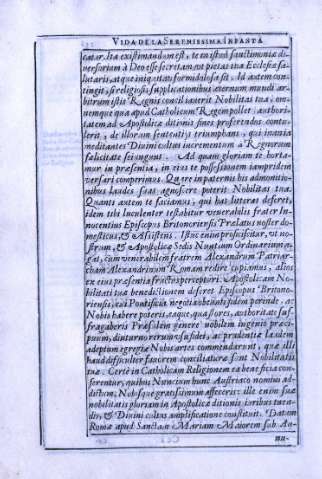 VIDA DE LA SERENISSIMA INFANTA
catar. Ita existimandum est, te en istud sanctimoniæ di-
versorium à Deo esse secretam, ot pietas tua Ecclesiæ sa-
lutaris, atque iniquitati formidolosa sit. Id autem con-
tingit, si religiosis supplicationibus æternum mundi ar-
bitrum istis Regnis conciliaverit Nobilitas tua, eu-
nemque qua apud Catholicum Regem pollet authori-
tatem ad Apostolicæ ditionis fines proferendos contu-
lerit, de illorum sententijs triumphans, qui inania
meditantes Divini cultus incrementum à Regnorum
fælicitate seiungunt. Ad quam gloriam te horta-
mur in præsentia, in eius te possessionem iampridem
versari comperimus. Quare in paternis his admonitio-
nibus laudes suas agnoscere poterit Nobilitas tua.
Quanti autem te faciamus, qui has litteras deferet,
idem tibi luculenter testabitur venerabilis frater In-
nocentius Episcopus Britonoriensis Prælatus noster do-
mesticus, & Assistens. Istuc enim proficiscitur, ut no-
strum, & Apostolicæ Sedis Nuntium Ordinarium a-
gat, cum venerabilem fratrem Alexandrum Patriar-
cham Alexandrinum Romam redire cupiamus, alios
ex eius præsentia fructus percepturi. Apostolicam No-
bilitati tuæ benedictionem deferet Episcopus Britono-
riensis, cui Pontificia negotia obeunti fidem
Nobis habere poteris, eaque, qua flores, authoritate suf-
fragaberis Præsulem genere nobilem ingenio præci-
puum, diuturno rerum usu fidei, ac prudentiæ laudem
adeptum egregiæ Nobis artes commendarunt, quæ illi
haud difficulter favorem conciliaturæ sunt Nobilitatis
tuæ. Certè in Catholicam Religionem ea beneficia con-
ferentur, quibus Nuncium hunc Austriaco nomini ad-
dictum, Nobisque gratissimum affeceris: ille enim suæ
nobilitatis gloriam in Apostolicæ ditionis iuribus tuen-
dis, & Divini cultus amplificatione constituit. Datum
Romæ apud Sanctam Mariam Maiorem sub An-
nu-